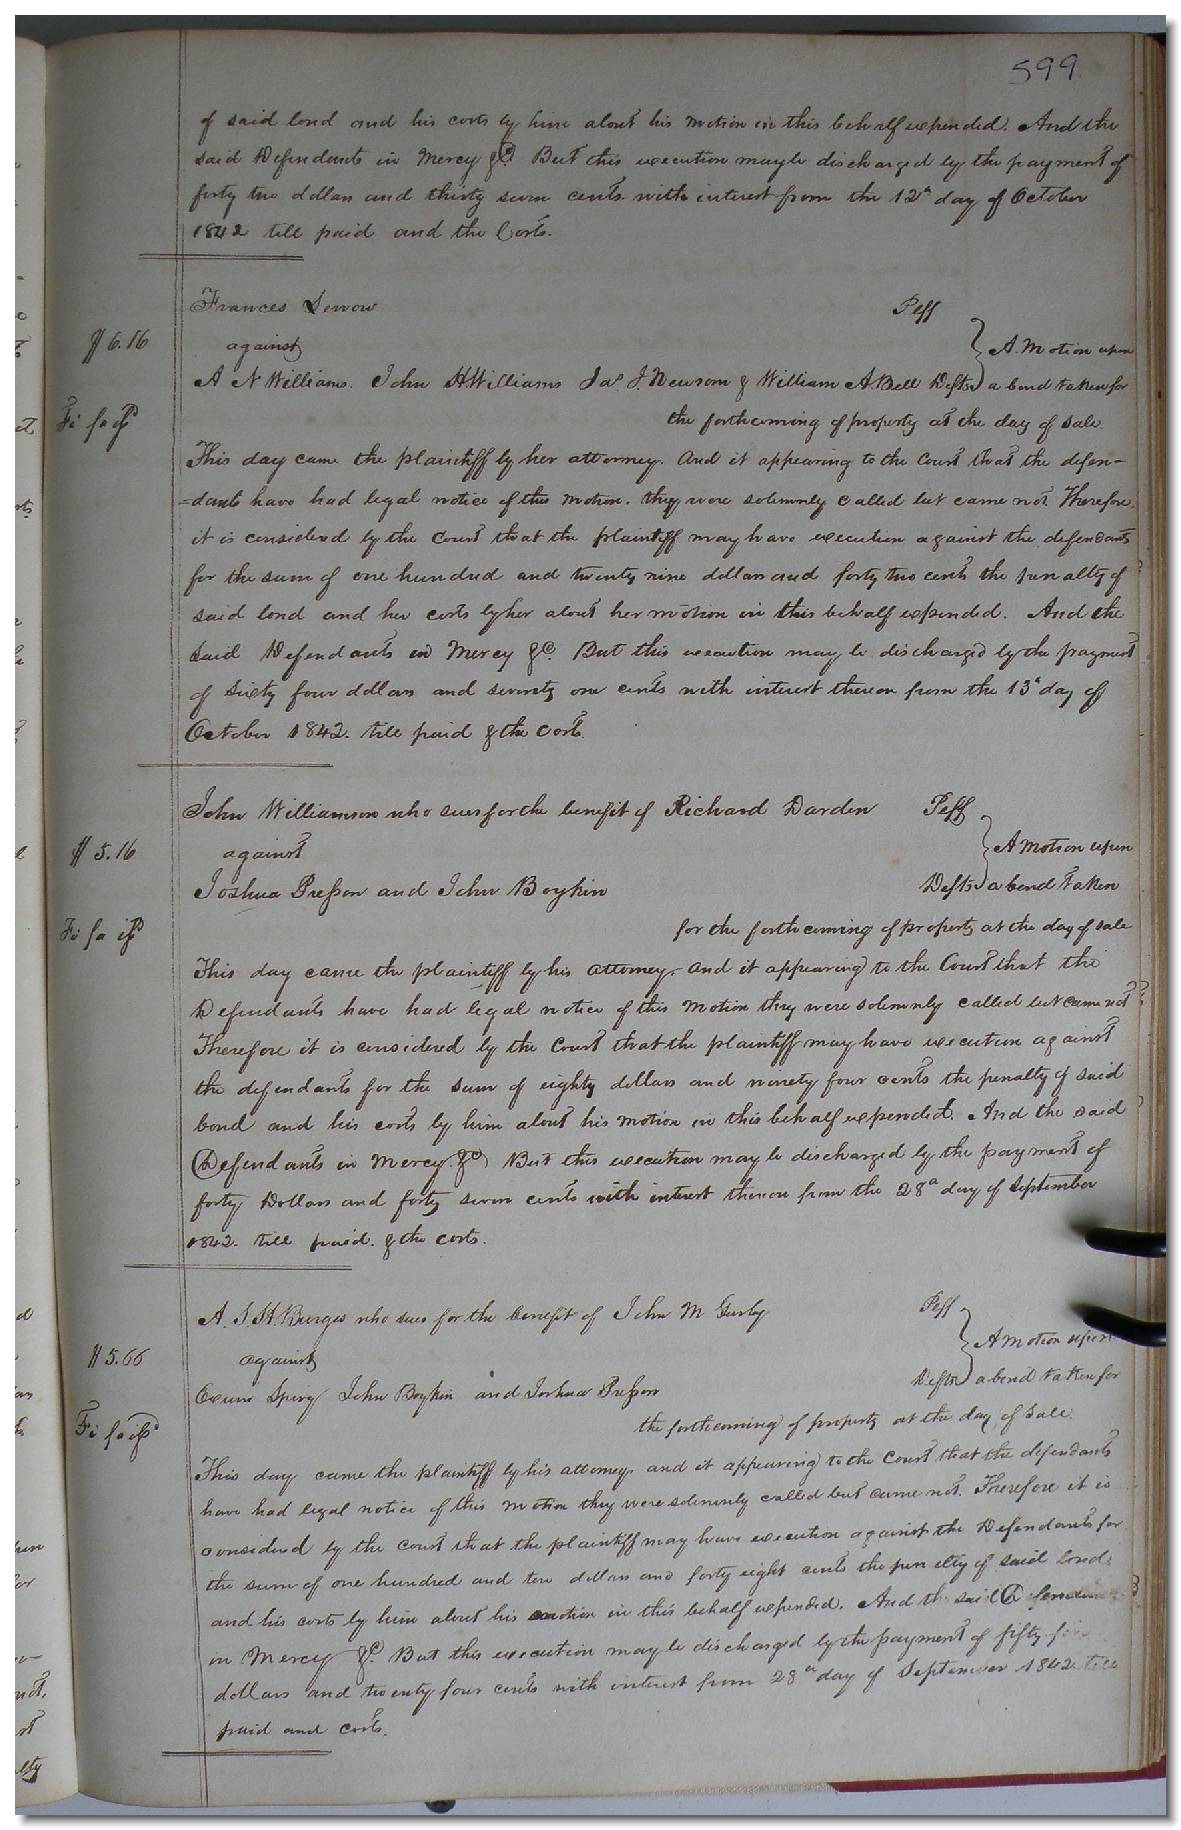 599
of said bond and his costs by him about his motion in this behalf expended. And the
said Defendants in Mercy &c. But this execution may be discharged by the payment of
forty two dollars and thirty seven cents with interest from the 12th day of October
1842 till paid and the Costs.
Frances Peff
$6.16 against A Motion upon
A N Williams. John H Williams Jas J. Newsom & William A. Bell Defts a bond taken for
Fi fa
the forthcoming of property at the day of sale.
This day came the plaintiff by her attorney. And it appearing to the Court that the defen-
=dants have had legal notice of this motion. they were solemnly called but came not. Therefore
it is considered by the Court that the plaintiff may have execution against the defendants
for the sum of one hundred and twenty nine dollars and forty two cents the penalty of
said bond and her costs by her about her motion in this behalf expended. And the
said Defendants in Mercy &c. But this execution may be discharged by the payment
of Sixty four dollars and seventy one cents with interest thereon from the 13th day of
October 1842. till paid & the Costs.
John Williamson who sues for the benefit of Richard Darden Peff
$5.16 against A Motion upon
Joshua Presson and John Boykin Defts a bond taken
Fi fa
for the forthcoming of property at the day of sale
This day came the plaintiff by his attorney and it appearing to the Court that the
Defendants have had legal notice of this motion they were solemnly called but came not
Therefore it is considered by the Court that the plaintiff may have execution against
the defendants for the sum of eighty dollars and ninety four cents the penalty of said
bond and his costs by him about his motion in this behalf expended. And the said
Defendants in Mercy. &c. But this execution may be discharged by the payment of
forty Dollars and forty seven cents with interest thereon from the 28th day of September
1842. till paid. & the costs.
A. J. H. Burges who sues for the benefit of John M Gurley Peff
$5.66 against A motion upon
Spivy John Boykin and Joshua Presson Defts a bond taken for
Fi fa
the forthcoming of property at the day of sale.
This day came the plaintiff by his attorney and it appearing to the Court that the defendants
have had legal notice of this motion they were solemnly called but came not. Therefore it is
considered by the Court that the plaintiff may have execution against the Defendants for
the sum of one hundred and ten dollars and forty eight cents the penalty of said bond
and his costs by him about his motion in this behalf expended. And the said Defendants
in Mercy &c. But this execution may be discharged by the payment of fifty five
dollars and twenty four cents with interest from 28th day of September 1842 till
paid and costs.